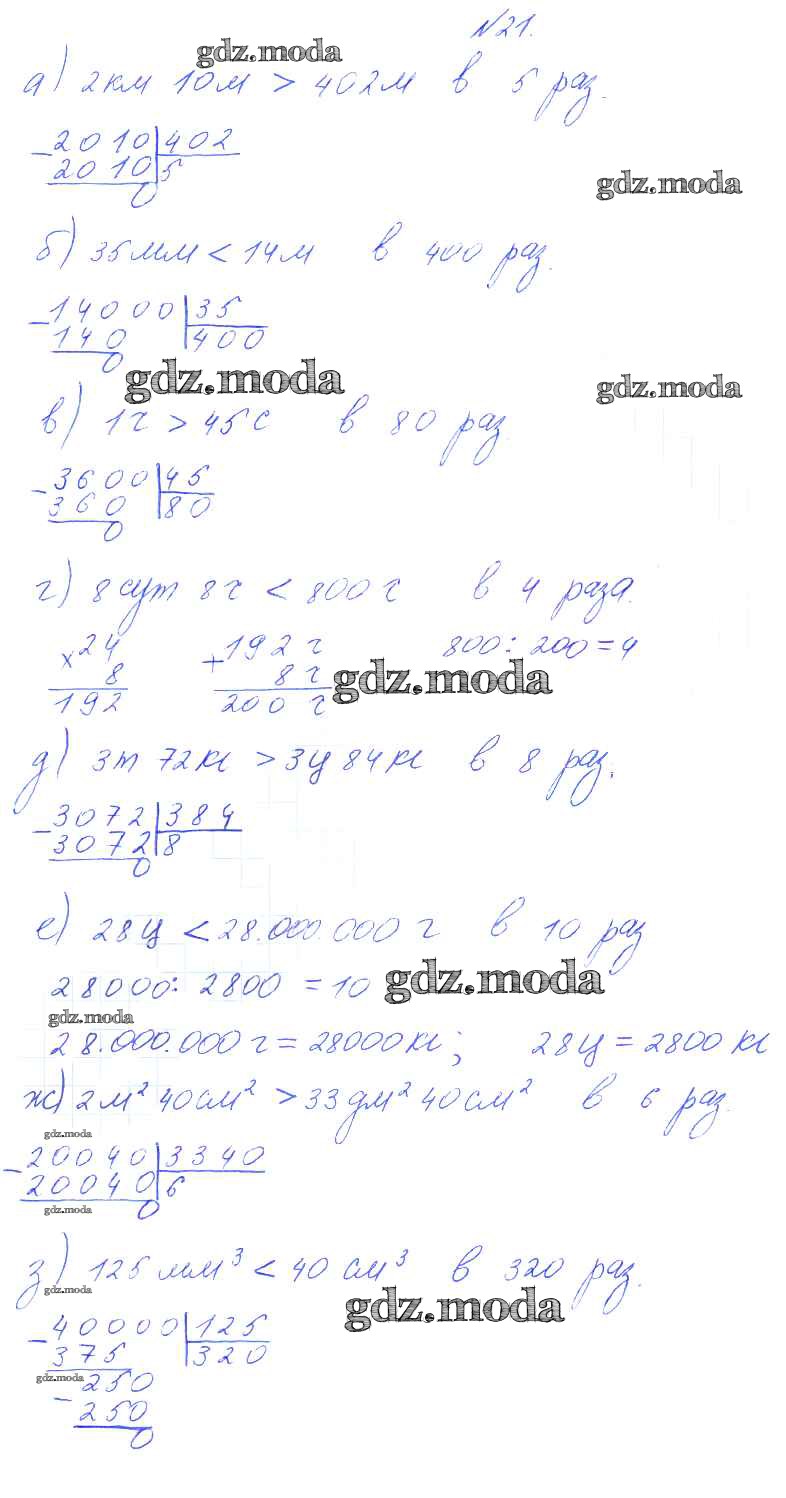 №21.
gdz.moda
а) 2км 10м > 402м в 5 раз.
- 2010 | 402
2010 | 5
gdz.moda
0
б) 35мм < 14м в 400 раз.
- 14000 | 35
140 | 400
0
gdz.moda
gdz.moda
в) 1ч > 45с в 80 раз.
- 3600 | 45
360 | 80
0
г) 8сут 8ч < 800ч в 4 раза.
× 24 + 192ч 800 : 200 = 4
8 8ч
gdz.moda
192 200 ч
д) 3т 72кг > 3ц 84кг в 8 раз.
- 3072 | 384
3072 | 8
0
е) 28ц < 28.000.000 г в 10 раз
28000 : 2800 = 10
gdz.moda
gdz.moda
28.000.000 г = 28000кг; 28ц = 2800 кг
ж) 2м² 40см² > 33дм² 40см² в 6 раз.
gdz.moda
- 20040 | 3340
20040 | 6
0
gdz.moda
з) 125мм³ < 40 см³ в 320 раз.
gdz.moda
gdz.moda
- 40000 | 125
375 | 320
gdz.moda
- 250
250
0